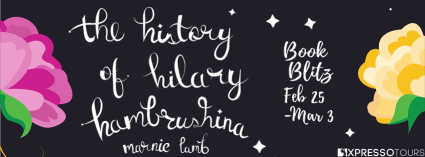 the history
of hilary
hambrushina
marnie lamb
Book
Blitz
Feb 25
-Mar 3
XPRESSOTOURS